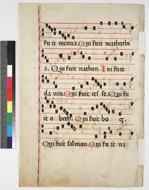 fu it menna. Qui fuit mathatha
a. Qui fuit nathan. Qui fuit
da vid. Qui fuit ies se. Qui fu
it o beth. Qui fuit bo oz.
Qui fuit salmon. Qui fu it na